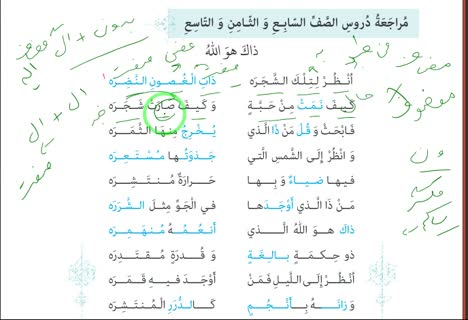 مُراجَعَةُ دُروسِ الصَّفِّ السّابِعِ وَ الثّامِنِ وَ التّاسِعِ
ذاكَ هوَ اللّٰهُ
اُنْظُرْ لِتِلْكَ الشَّجَرَه ذاتِ الْغُصونِ النَّضِرَه ۱
كَيْفَ نَمَتْ مِنْ حَبَّةٍ وَ كَيْفَ صارَتْ شَجَرَه
فَابْحَثْ وَ قُلْ مَنْ ذَا الَّذي يُخْرِجُ مِنْهَا الثَّمَرَه
وَ انْظُرْ إلَى الشَّمْسِ الَّتي جَذْوَتُها مُسْتَعِرَه
فيها ضياءٌ وَ بِها حَرارَةٌ مُنْتَشِرَه
مَنْ ذَا الَّذي أَوْجَدَها في الْجَوِّ مِثْلَ الشَّرَرَه
ذاكَ هوَ اللّٰهُ الَّذي أَنْعُمُهُ مُنْهَمِرَه
ذو حِكمَةٍ بالِغَةٍ وَ قُدْرَةٍ مُقْتَدِرَه
اُنْظُرْ إلَى اللَّيْلِ فَمَنْ أَوْجَدَ فيهِ قَمَرَه
وَ زانَهُ بِأَنْجُمٍ كَالدُّرَرِ الْمُنْتَشِرَه
بدون + ال
ال + ال
صفت